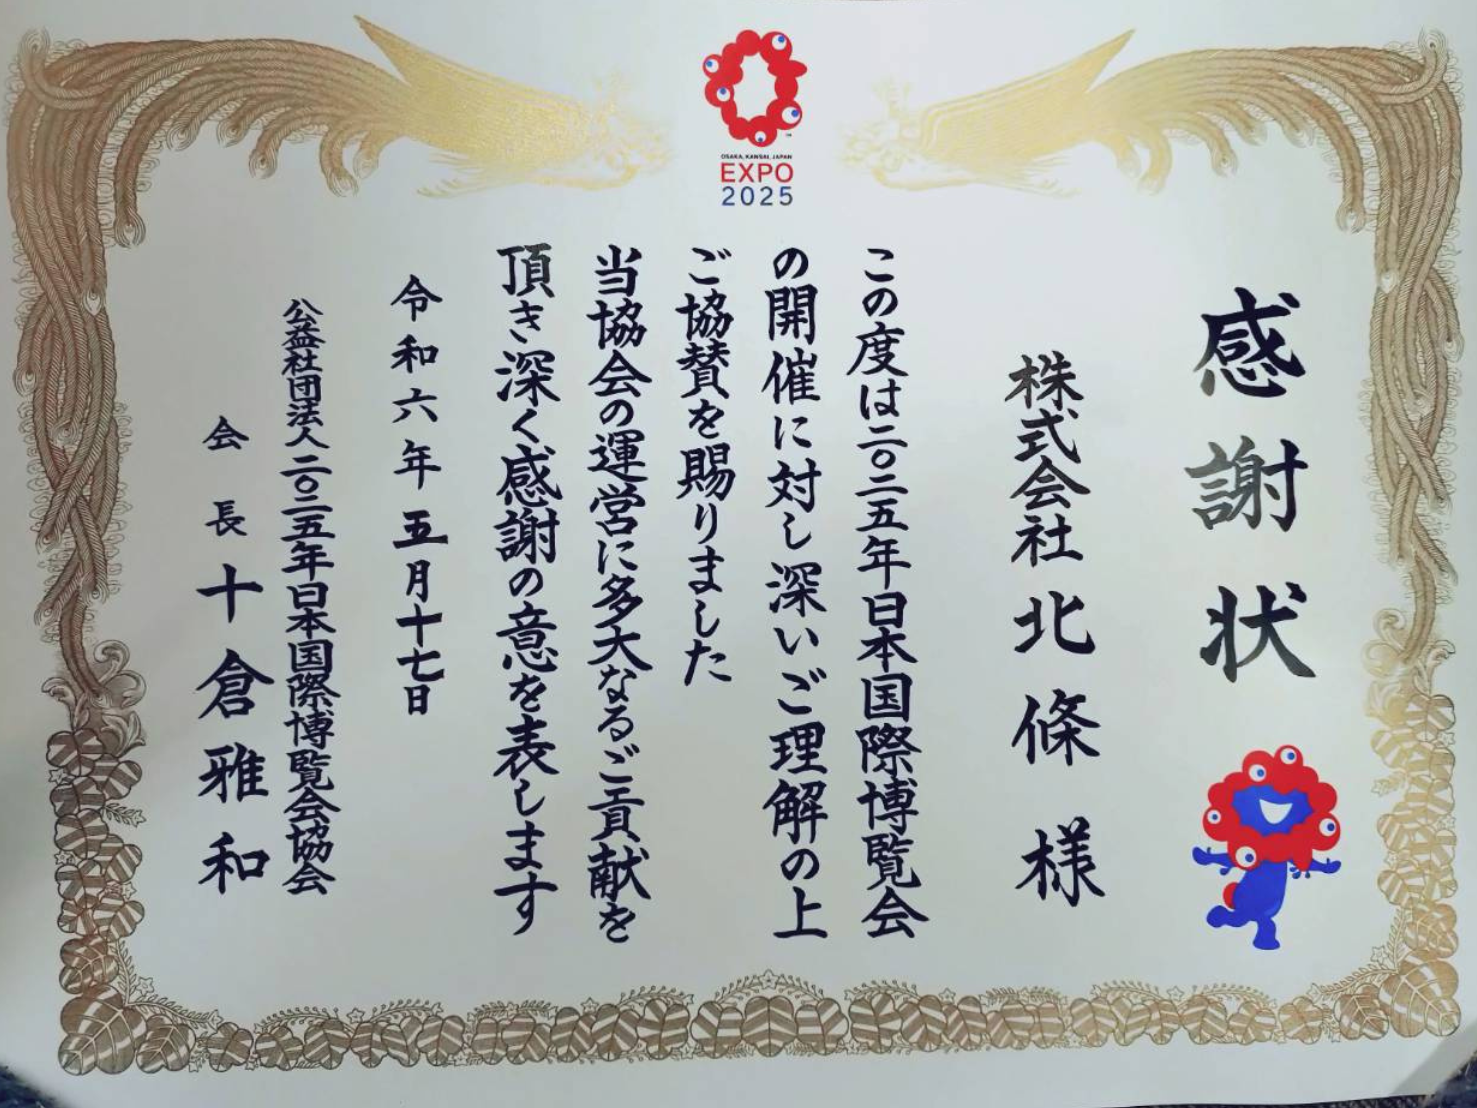 OSAKA, KANSAI, JAPAN
EXPO
2025
感謝状
株式会社北條様
この度は二〇二五年日本国際博覧会
の開催に対し深いご理解の上
ご協賛を賜りました
当協会の運営に多大なるご貢献を
頂き深く感謝の意を表します
令和六年五月十七日
公益社団法人二〇二五年日本国際博覧会協会
会長十倉雅和